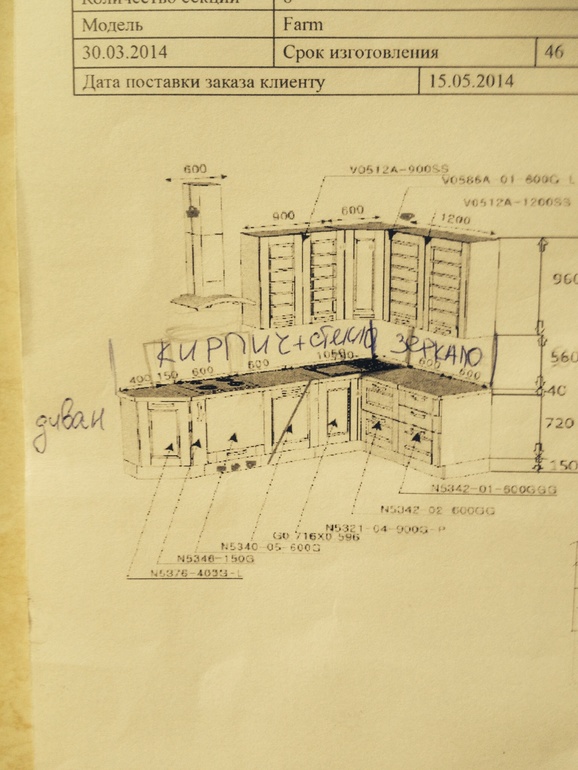 Количество секций
Модель Farm
30.03.2014 Срок изготовления 46
Дата поставки заказа клиенту 15.05.2014
600
V0512A-900SS
V0586A-01-600G-L
V0512A-1200SS
900 600 1200
960
КИРПИЧ+СТЕКЛО ЗЕРКАЛО
560
400 150 600 600 600 600
40
диван
720
150
N5342-01-600GGG
N5342-02-600GG
N5321-04-900G-P
G0 716X0 596
N5340-05-600G
N5346-150G